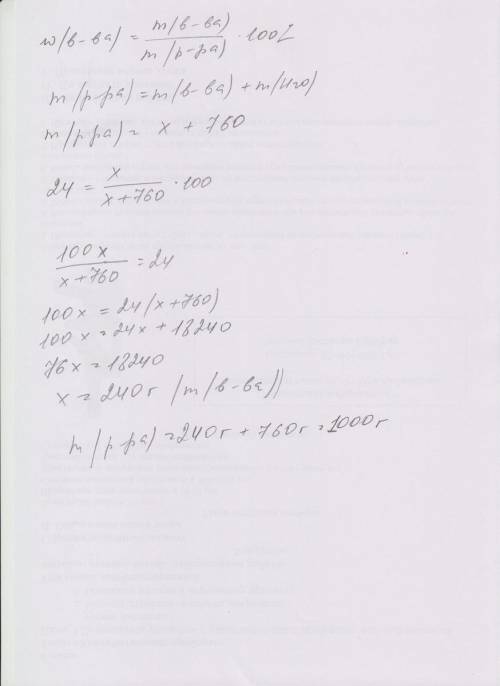 w(в-ва) = m(в-ва) / m(р-ра) · 100%
m(р-ра) = m(в-ва) + m(H2O)
m(р-ра) = x + 760
24 = x / x+760 · 100
100x / x+760 = 24
100x = 24(x+760)
100x = 24x + 18240
76x = 18240
x = 240г (m(в-ва))
m(р-ра) = 240г + 760г = 1000г